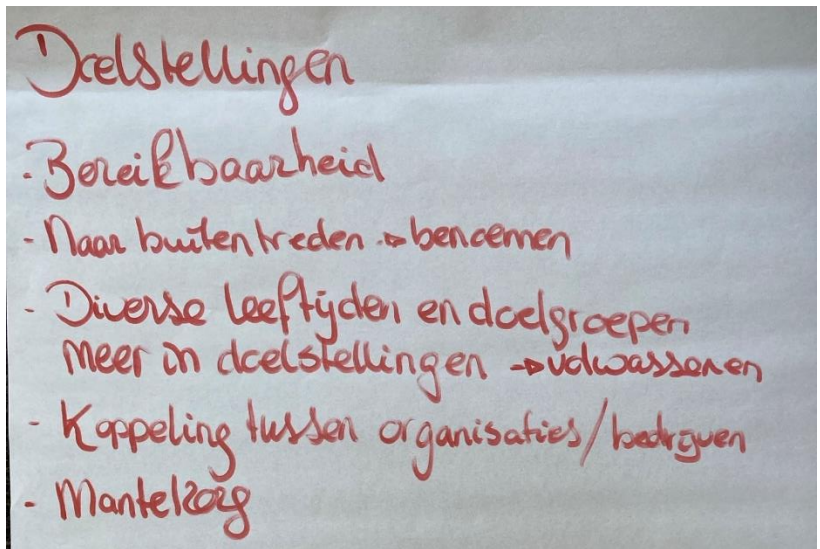 Doelstellingen
- Bereikbaarheid
- Naar buiten treden → benoemen
- Diverse leeftijden en doelgroepen
meer in doelstellingen → volwassenen
- Koppeling tussen organisaties/bedrijven
- Mantelzorg